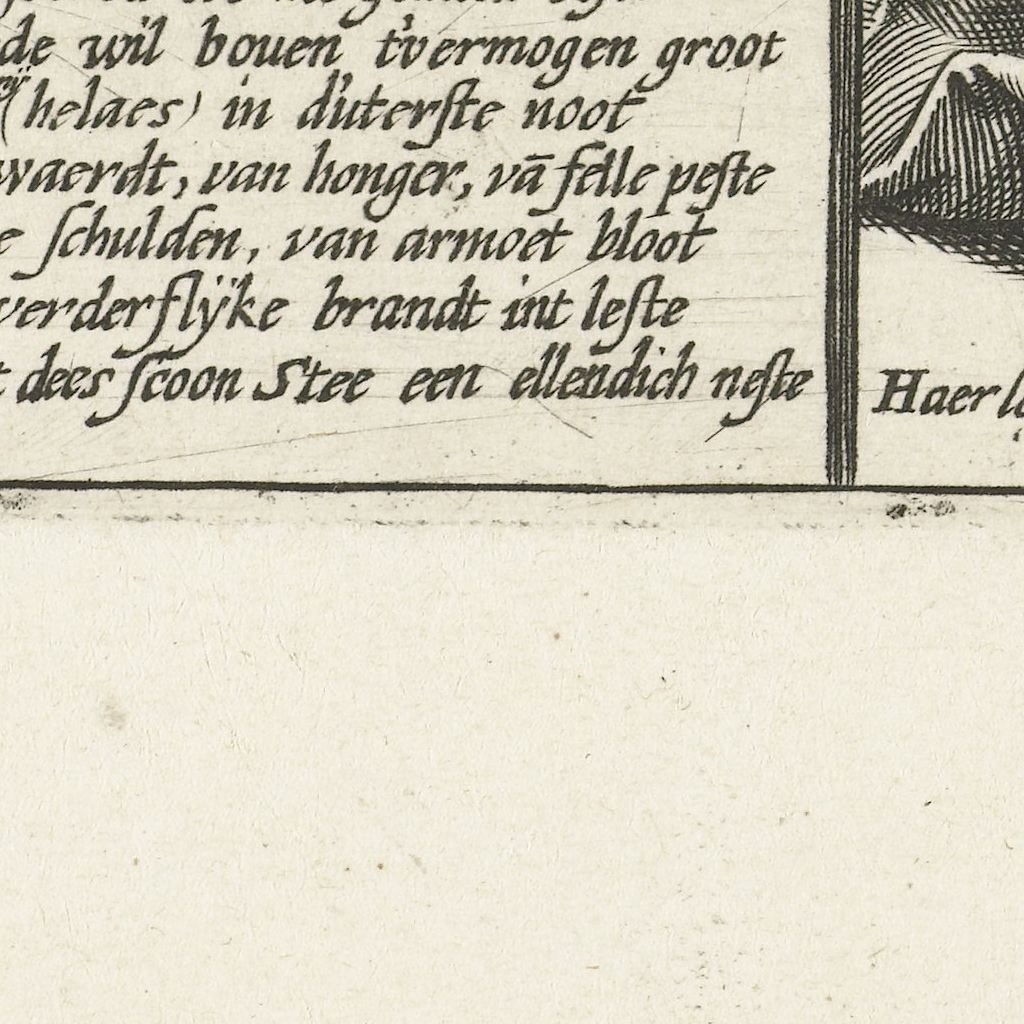 de wil bouen t'vermogen groot
(helaes) in d'uterſte noot
waerdt, van honger, vā felle peſte
e ſchulden, van armoet bloot
verderflÿke brandt int leſte
t dees ſcoon Stee een ellendich neſte
Haerl